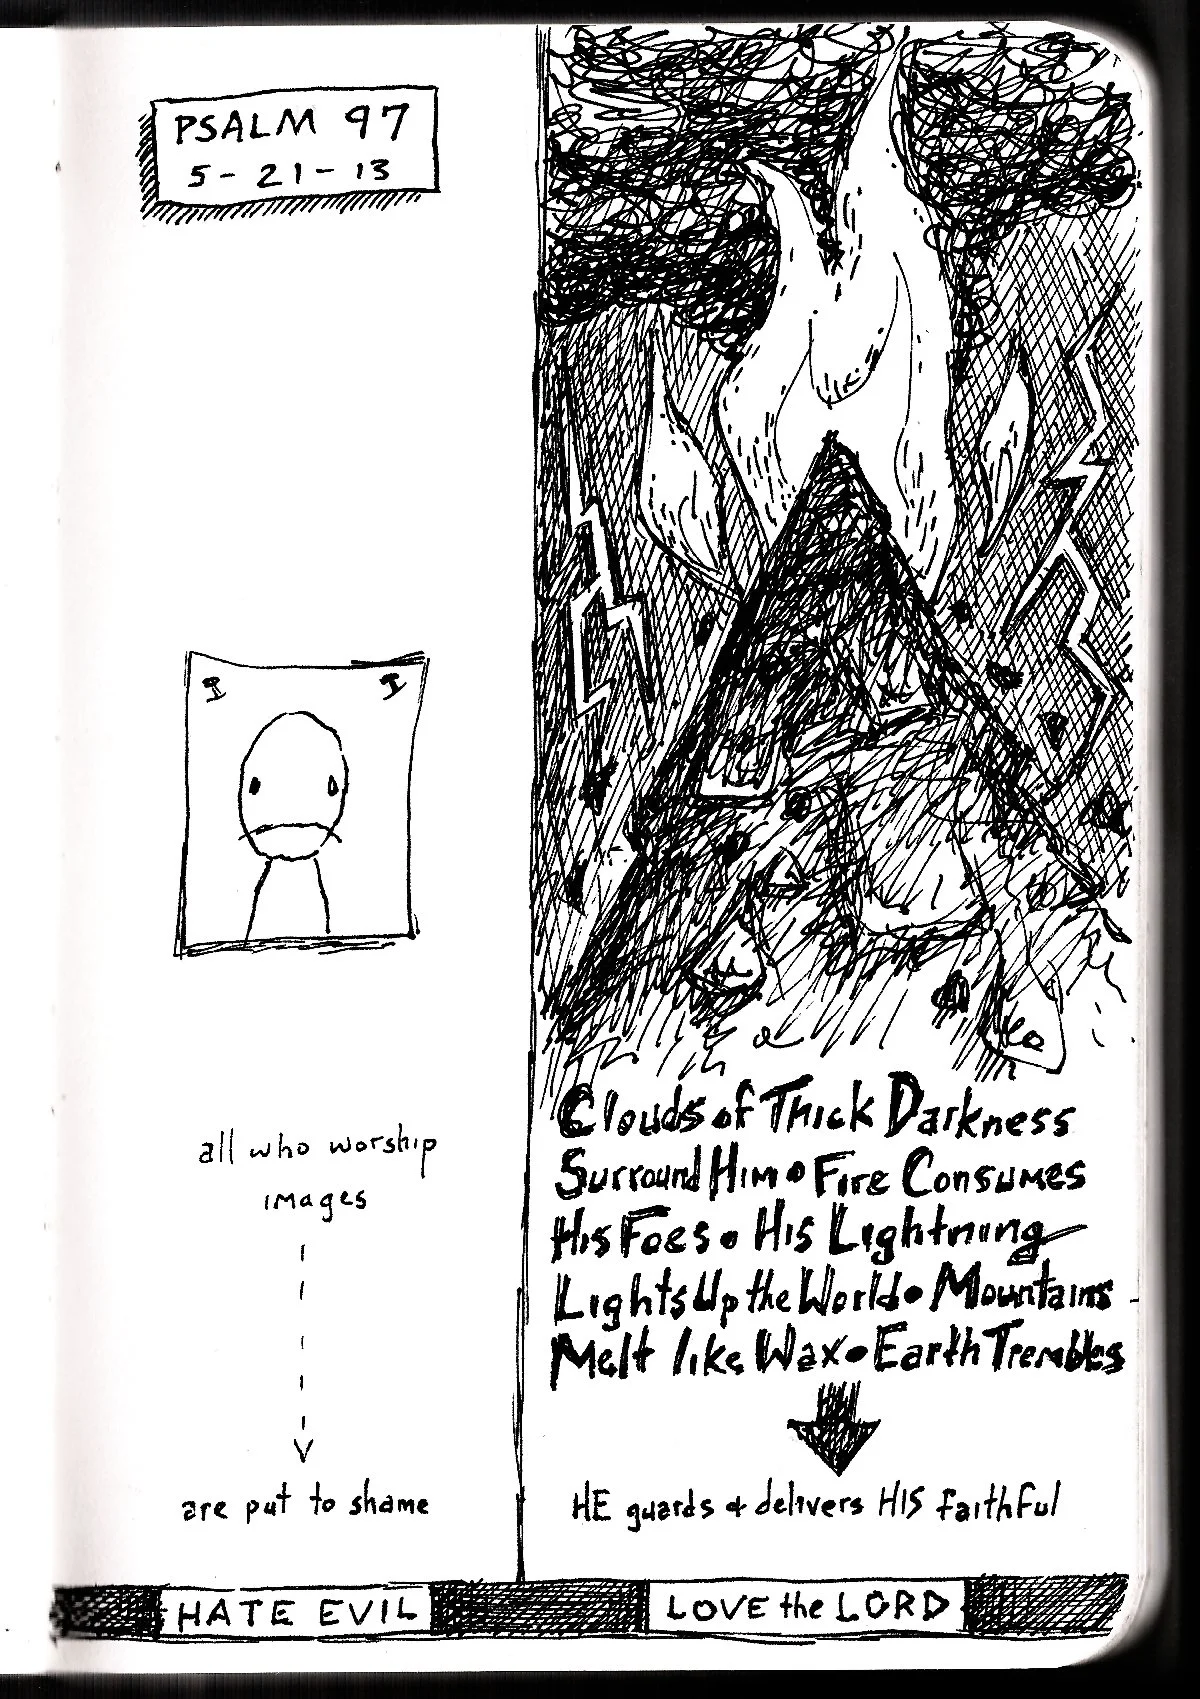 PSALM 97
5-21-13
all who worship
images
are put to shame
Clouds of Thick Darkness
Surround Him • Fire Consumes
His Foes • His Lightning
Lights Up the World • Mountains
Melt like Wax • Earth Trembles
HE guards & delivers HIS faithful
HATE EVIL
LOVE the LORD